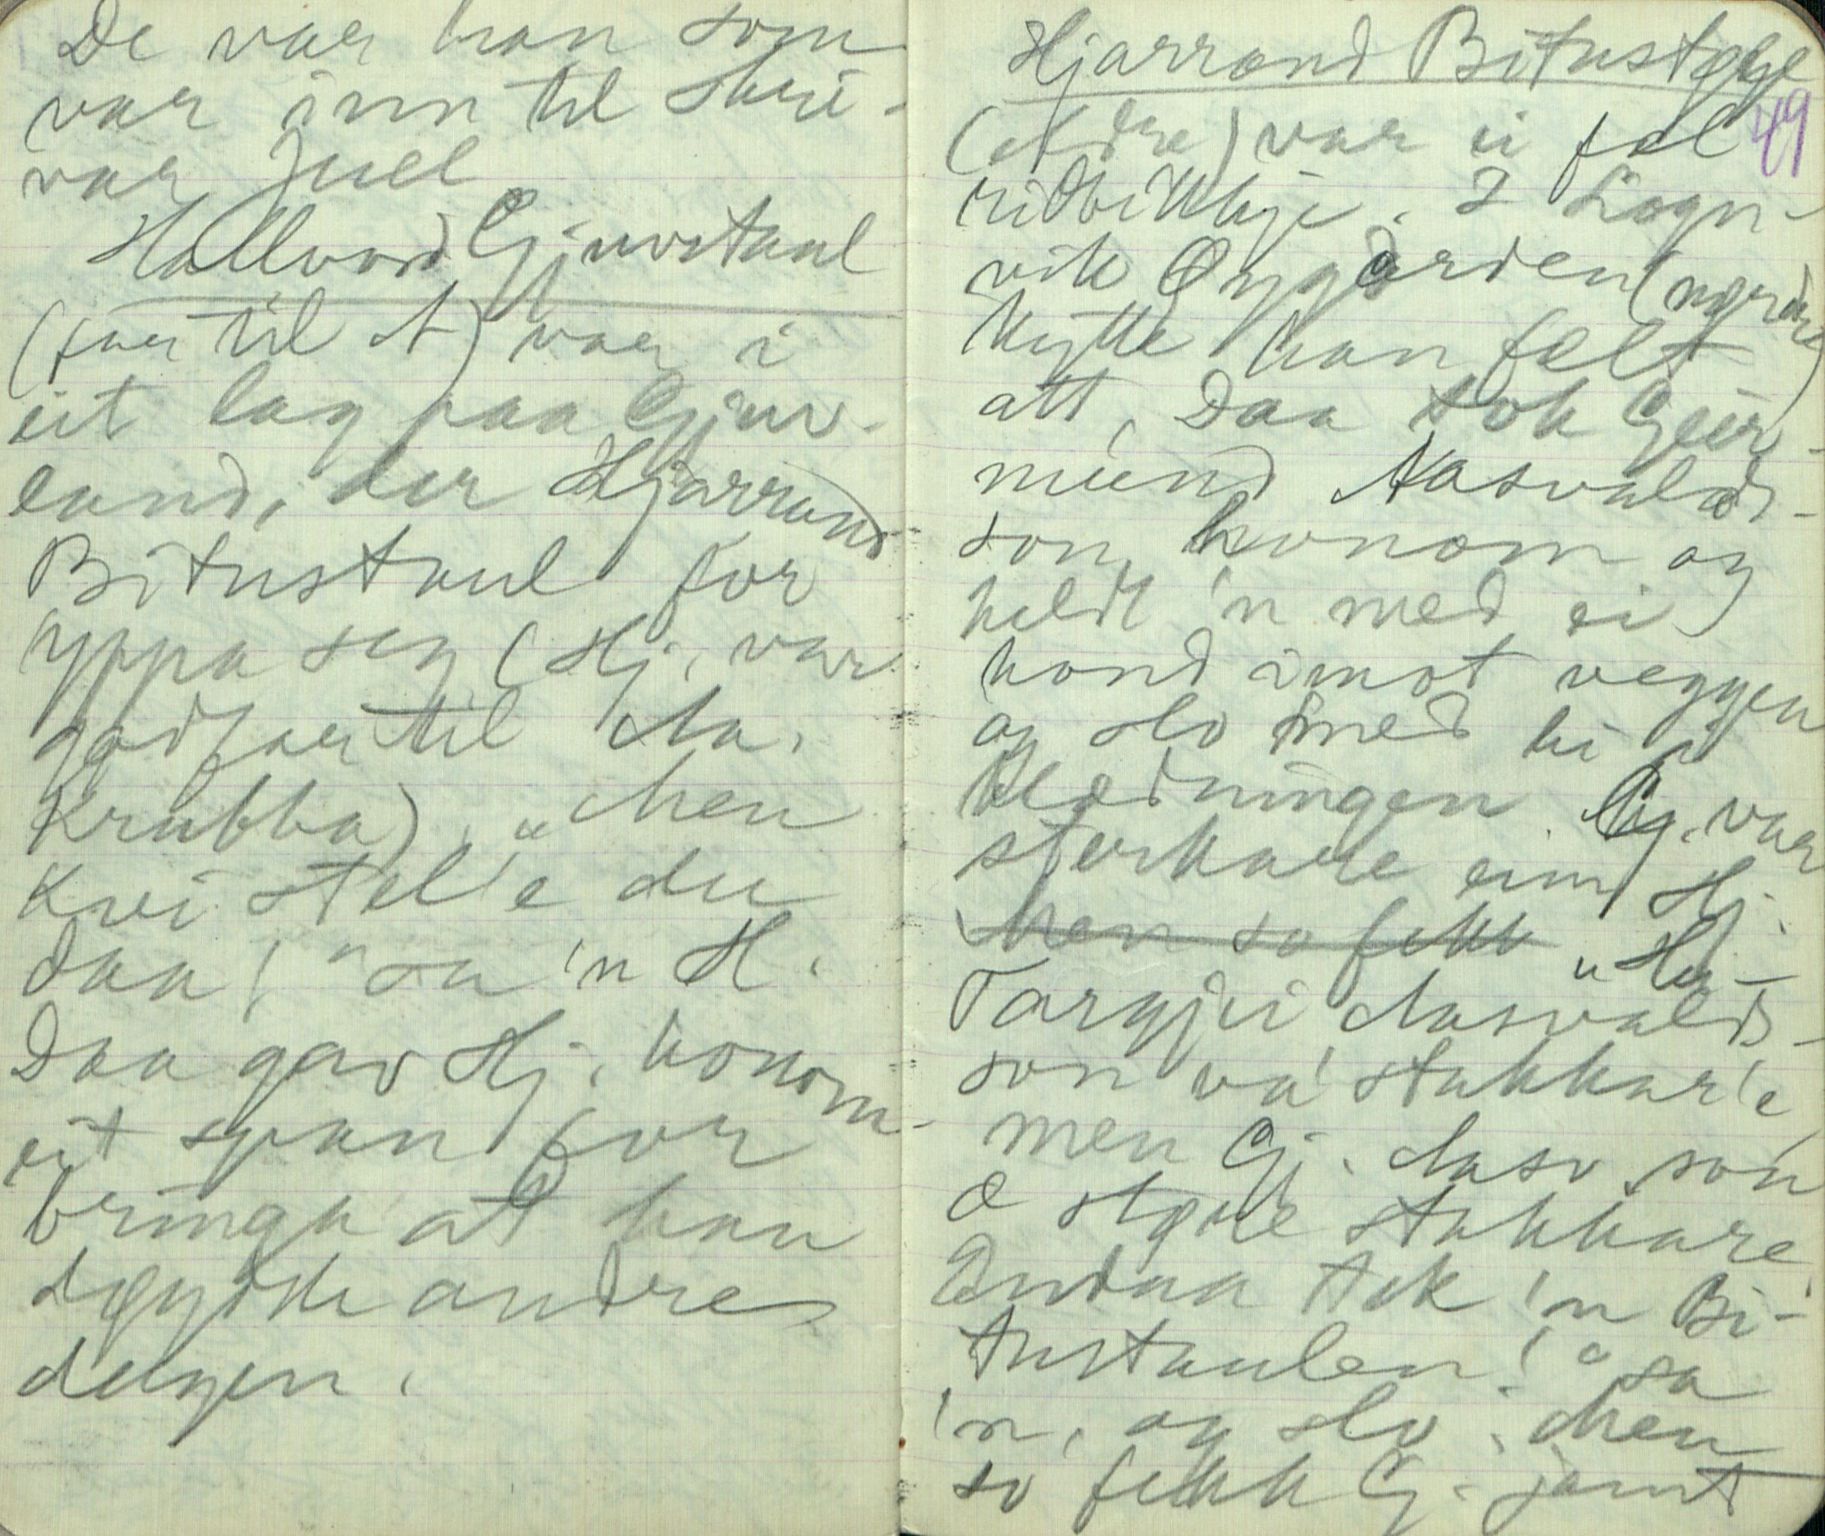 De var han som
var inn til skri-
var Juel
Hallvord Gjuvstaul
(far til A) var i
eit lag paa Gjuv-
land, der Hjarrand
Bitustaul for
yppa seg (Hj. var
godfar til Aa.
Krubba). „Men
kvi stelle du
daa!" sa 'n H.
Daa gav Hj. honom
eit span for
bringa at han
døydde andre
dagen.
Hjarrand Bitustøyl
49
(eldre) var ei fæl
ridbikkje. I Logn-
vik Øygarden (nørdre)
hytte han felt
att, Daa tok Geir-
mund Aasvalds-
son honom og
heldt 'n med ei
hond imot veggen
og slo med hi i
klædningen. Gj. var
sterkare enn Hj.
Men so fekk „Ha-
Targjei Aasvalds-
son va' stakkar'e,
men Gj. Aasv.son
æ slære stakkare
Endaa tok 'n Bi-
tustaulen!" sa
'n, og slo. Men
so fekk G. jamt